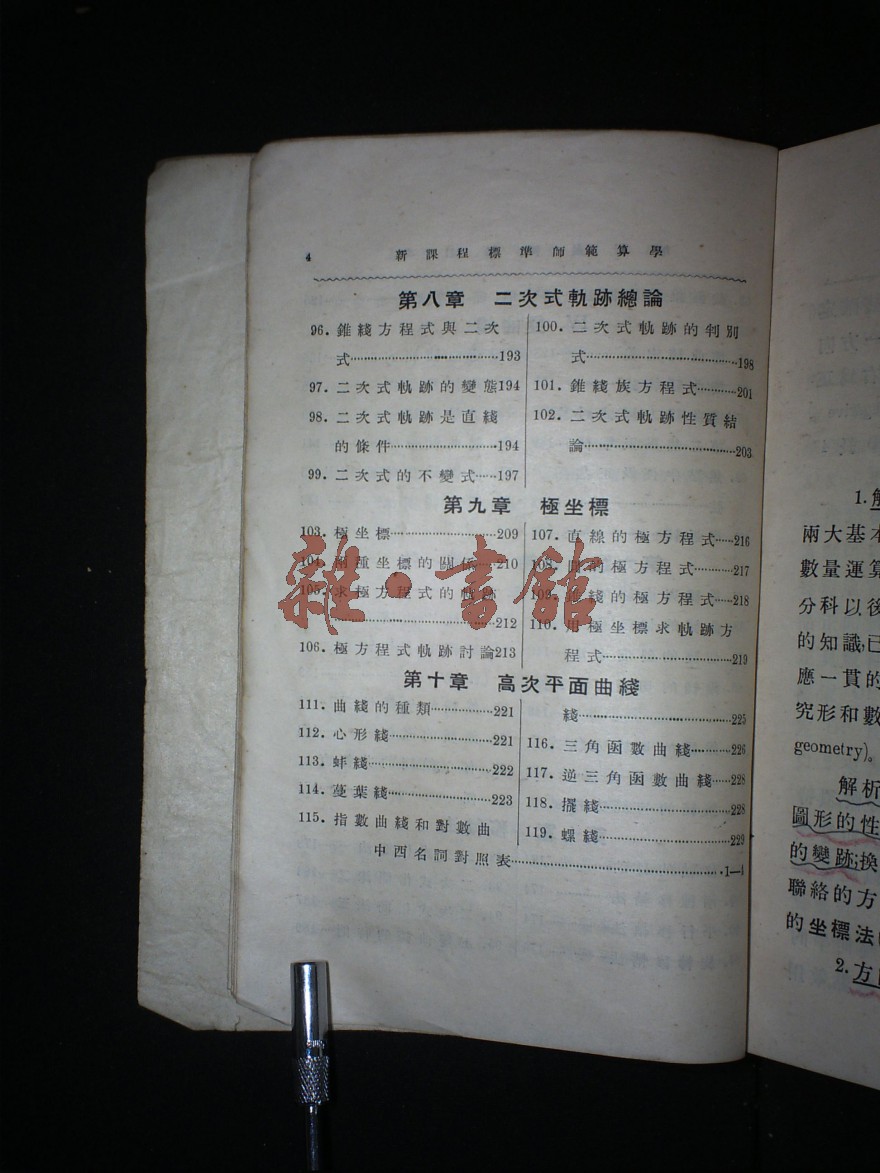 4 新課程標準師範算學
第八章 二次式軌跡總論
96. 錐綫方程式與二次
式……193
97. 二次式軌跡的變態194
98. 二次式軌跡是直綫
的條件……194
99. 二次式的不變式……197
100. 二次式軌跡的判別
式……198
101. 錐綫族方程式……201
102. 二次式軌跡性質結
論……203
第九章 極坐標
103. 極坐標……209
104. 兩種坐標的關係……210
105. 求極方程式的軌跡
……212
106. 極方程式軌跡討論213
107. 直線的極方程式……216
108. 圓的極方程式……217
109. 錐綫的極方程式……218
110. 用極坐標求軌跡方
程式……219
第十章 高次平面曲綫
111. 曲綫的種類……221
112. 心形綫……221
113. 蚌綫……222
114. 蔓葉綫……223
115. 指數曲綫和對數曲
綫……225
116. 三角函數曲綫……226
117. 逆三角函數曲綫……228
118. 擺綫……228
119. 螺綫……229
中西名詞對照表……1—4
雜·書館
1. 解
兩大基本
數量運算
分科以後
的知識,已
應一貫的
究形和數
geometry)。
解析
圖形的性
的變跡;換
聯絡的方
的坐標法
2. 方